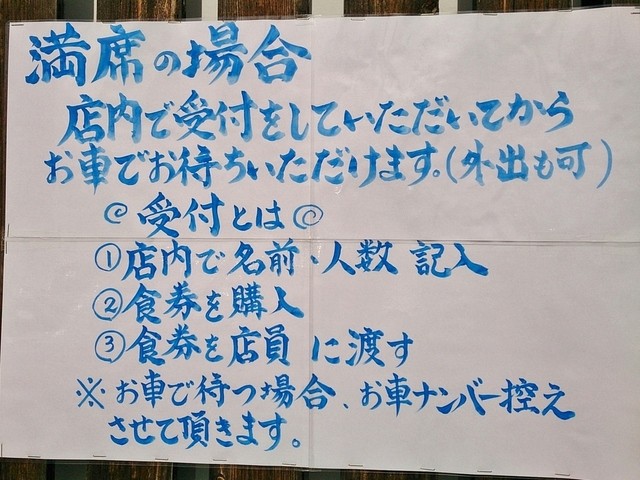 満席の場合
店内で受付をしていただいてから
お車でお待ちいただけます。(外出も可)
受付とは
①店内で名前・人数 記入
②食券を購入
③食券を店員に渡す
※お車で待つ場合、お車ナンバー控え
させて頂きます。